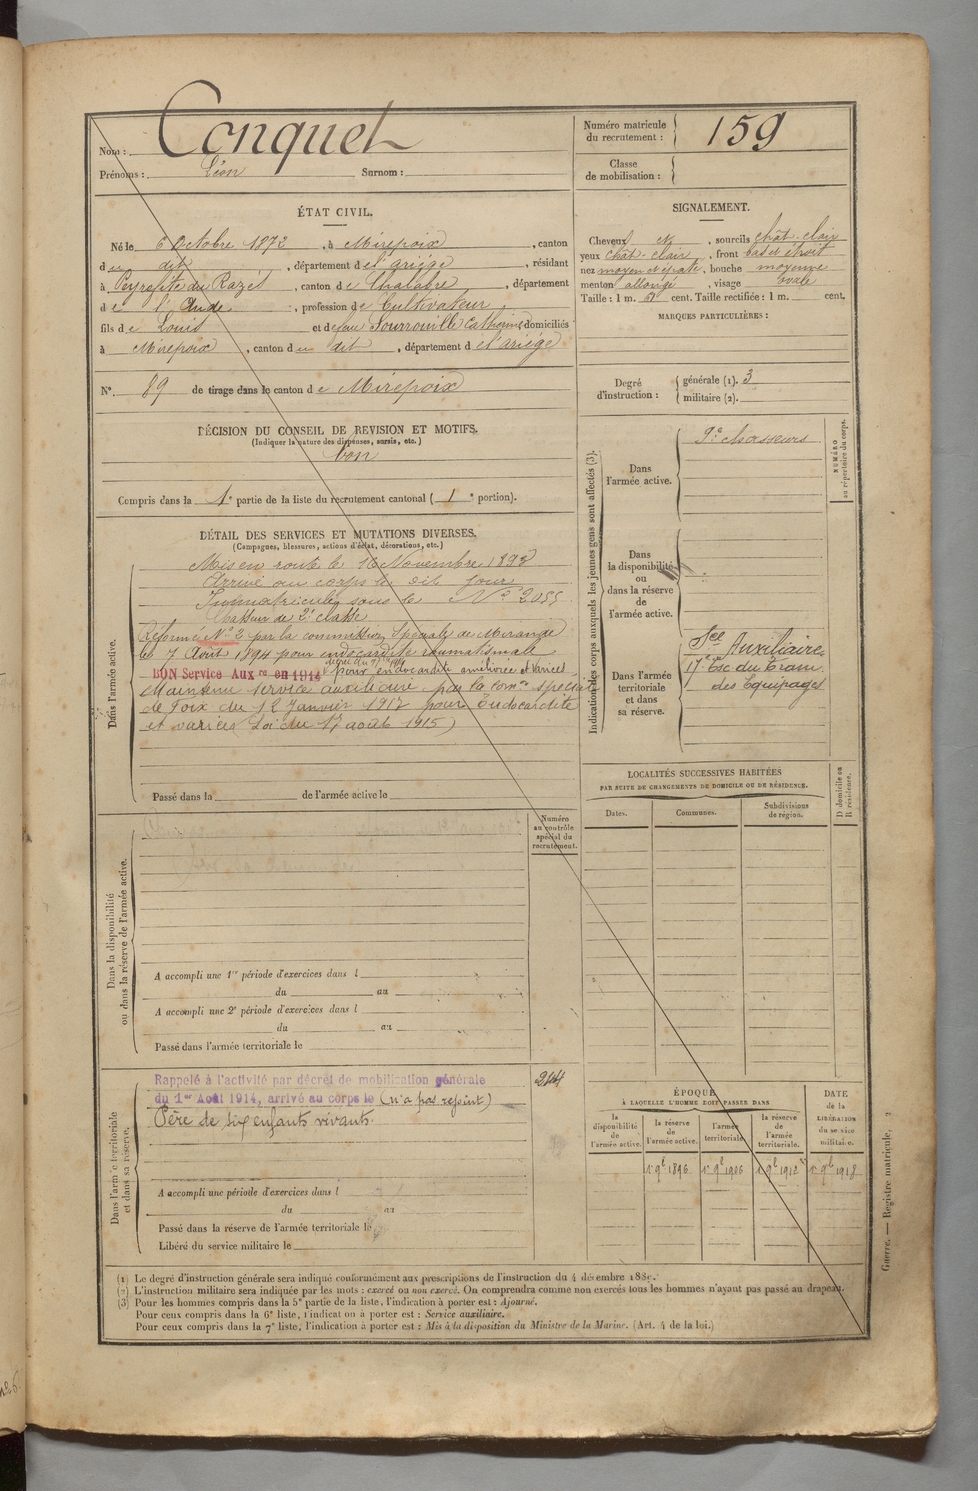 Nom : Conquet
Prénoms : Léon Surnom :
Numéro matricule du recrutement : 159
Classe de mobilisation :
ÉTAT CIVIL.
Né le 6 Octobre 1872, à Mirepoix, canton
du dit, département de l'ariège, résidant
à Peyrefite du Razès, canton de Chalabre, département
de l'Aude, profession de Cultivateur
fils de Louis et de feue Sourrouille Catherine domiciliés
à Mirepoix, canton du dit, département de l'ariège
N° 89 de tirage dans le canton de Mirepoix
DÉCISION DU CONSEIL DE REVISION ET MOTIFS.
(Indiquer la nature des dispenses, sursis, etc.)
bon
Compris dans la 1e partie de la liste du recrutement cantonal (1e portion).
SIGNALEMENT.
Cheveux , sourcils chât-clair
yeux chât-clair, front bas et étroit
nez moyen et épaté, bouche moyenne
menton allongé, visage ovale
Taille : 1 m. cent. Taille rectifiée : 1 m. cent.
MARQUES PARTICULIÈRES :
Degré d'instruction :
générale (1). 3
militaire (2).
Indication des corps auxquels les jeunes gens sont affectés (3).
NUMÉRO au répertoire du corps.
Dans l'armée active.
9e chasseurs
Dans la disponibilité ou dans la réserve de l'armée active.
Dans l'armée territoriale et dans sa réserve.
Sce Auxiliaire
17e Esc du Train
des Equipages
DÉTAIL DES SERVICES ET MUTATIONS DIVERSES.
(Campagnes, blessures, actions d'éclat, décorations, etc.)
Dans l'armée active.
Mis en route le 16 Novembre 1893
Arrivé au corps le dit jour
Immatriculé sous le N° 2055
Chasseur de 2e classe
Réformé N° 2 par la commission Spéciale de Mirande
le 7 Août 1894 pour endocardite rhumatismale
BON Service Auxre en 1914 pour endocardite améliorée et varices
Maintenu service auxiliaire par la comon spéciale
de Foix du 12 Janvier 1917 pour Endocardite
et varices Loi du 17 août 1915)
Passé dans la de l'armée active le
LOCALITÉS SUCCESSIVES HABITÉES
PAR SUITE DE CHANGEMENTS DE DOMICILE OU DE RÉSIDENCE.
Dates. Communes. Subdivisions de région. D domicile ou R résidence.
Numéro au contrôle spécial du recrutement.
Dans la disponibilité ou dans la réserve de l'armée active.
A accompli une 1re période d'exercices dans l
du au
A accompli une 2e période d'exercices dans l
du au
Passé dans l'armée territoriale le
Dans l'armée territoriale et dans sa réserve.
Rappelé à l'activité par décret de mobilisation générale
du 1er Août 1914, arrivé au corps le (n'a pas rejoint)
Père de six enfants vivants.
244
A accompli une période d'exercices dans l
du au
Passé dans la réserve de l'armée territoriale le
Libéré du service militaire le
ÉPOQUE
À LAQUELLE L'HOMME DOIT PASSER DANS
la disponibilité de l'armée active.
la réserve de l'armée active.
l'armée territoriale.
la réserve de l'armée territoriale.
DATE de la LIBÉRATION du service militaire.
1 9b 1896 1 9b 1906 1 9b 1912 1 9b 1918
(1) Le degré d'instruction générale sera indiqué conformément aux prescriptions de l'instruction du 4 décembre 1889.
(2) L'instruction militaire sera indiquée par les mots : exercé ou non exercé. On comprendra comme non exercés tous les hommes n'ayant pas passé au drapeau.
(3) Pour les hommes compris dans la 5e partie de la liste, l'indication à porter est : Ajourné.
Pour ceux compris dans la 6e liste, l'indication à porter est : Service auxiliaire.
Pour ceux compris dans la 7e liste, l'indication à porter est : Mis à la disposition du Ministre de la Marine. (Art. 4 de la loi.)
Guerre. — Registre matricule. 2